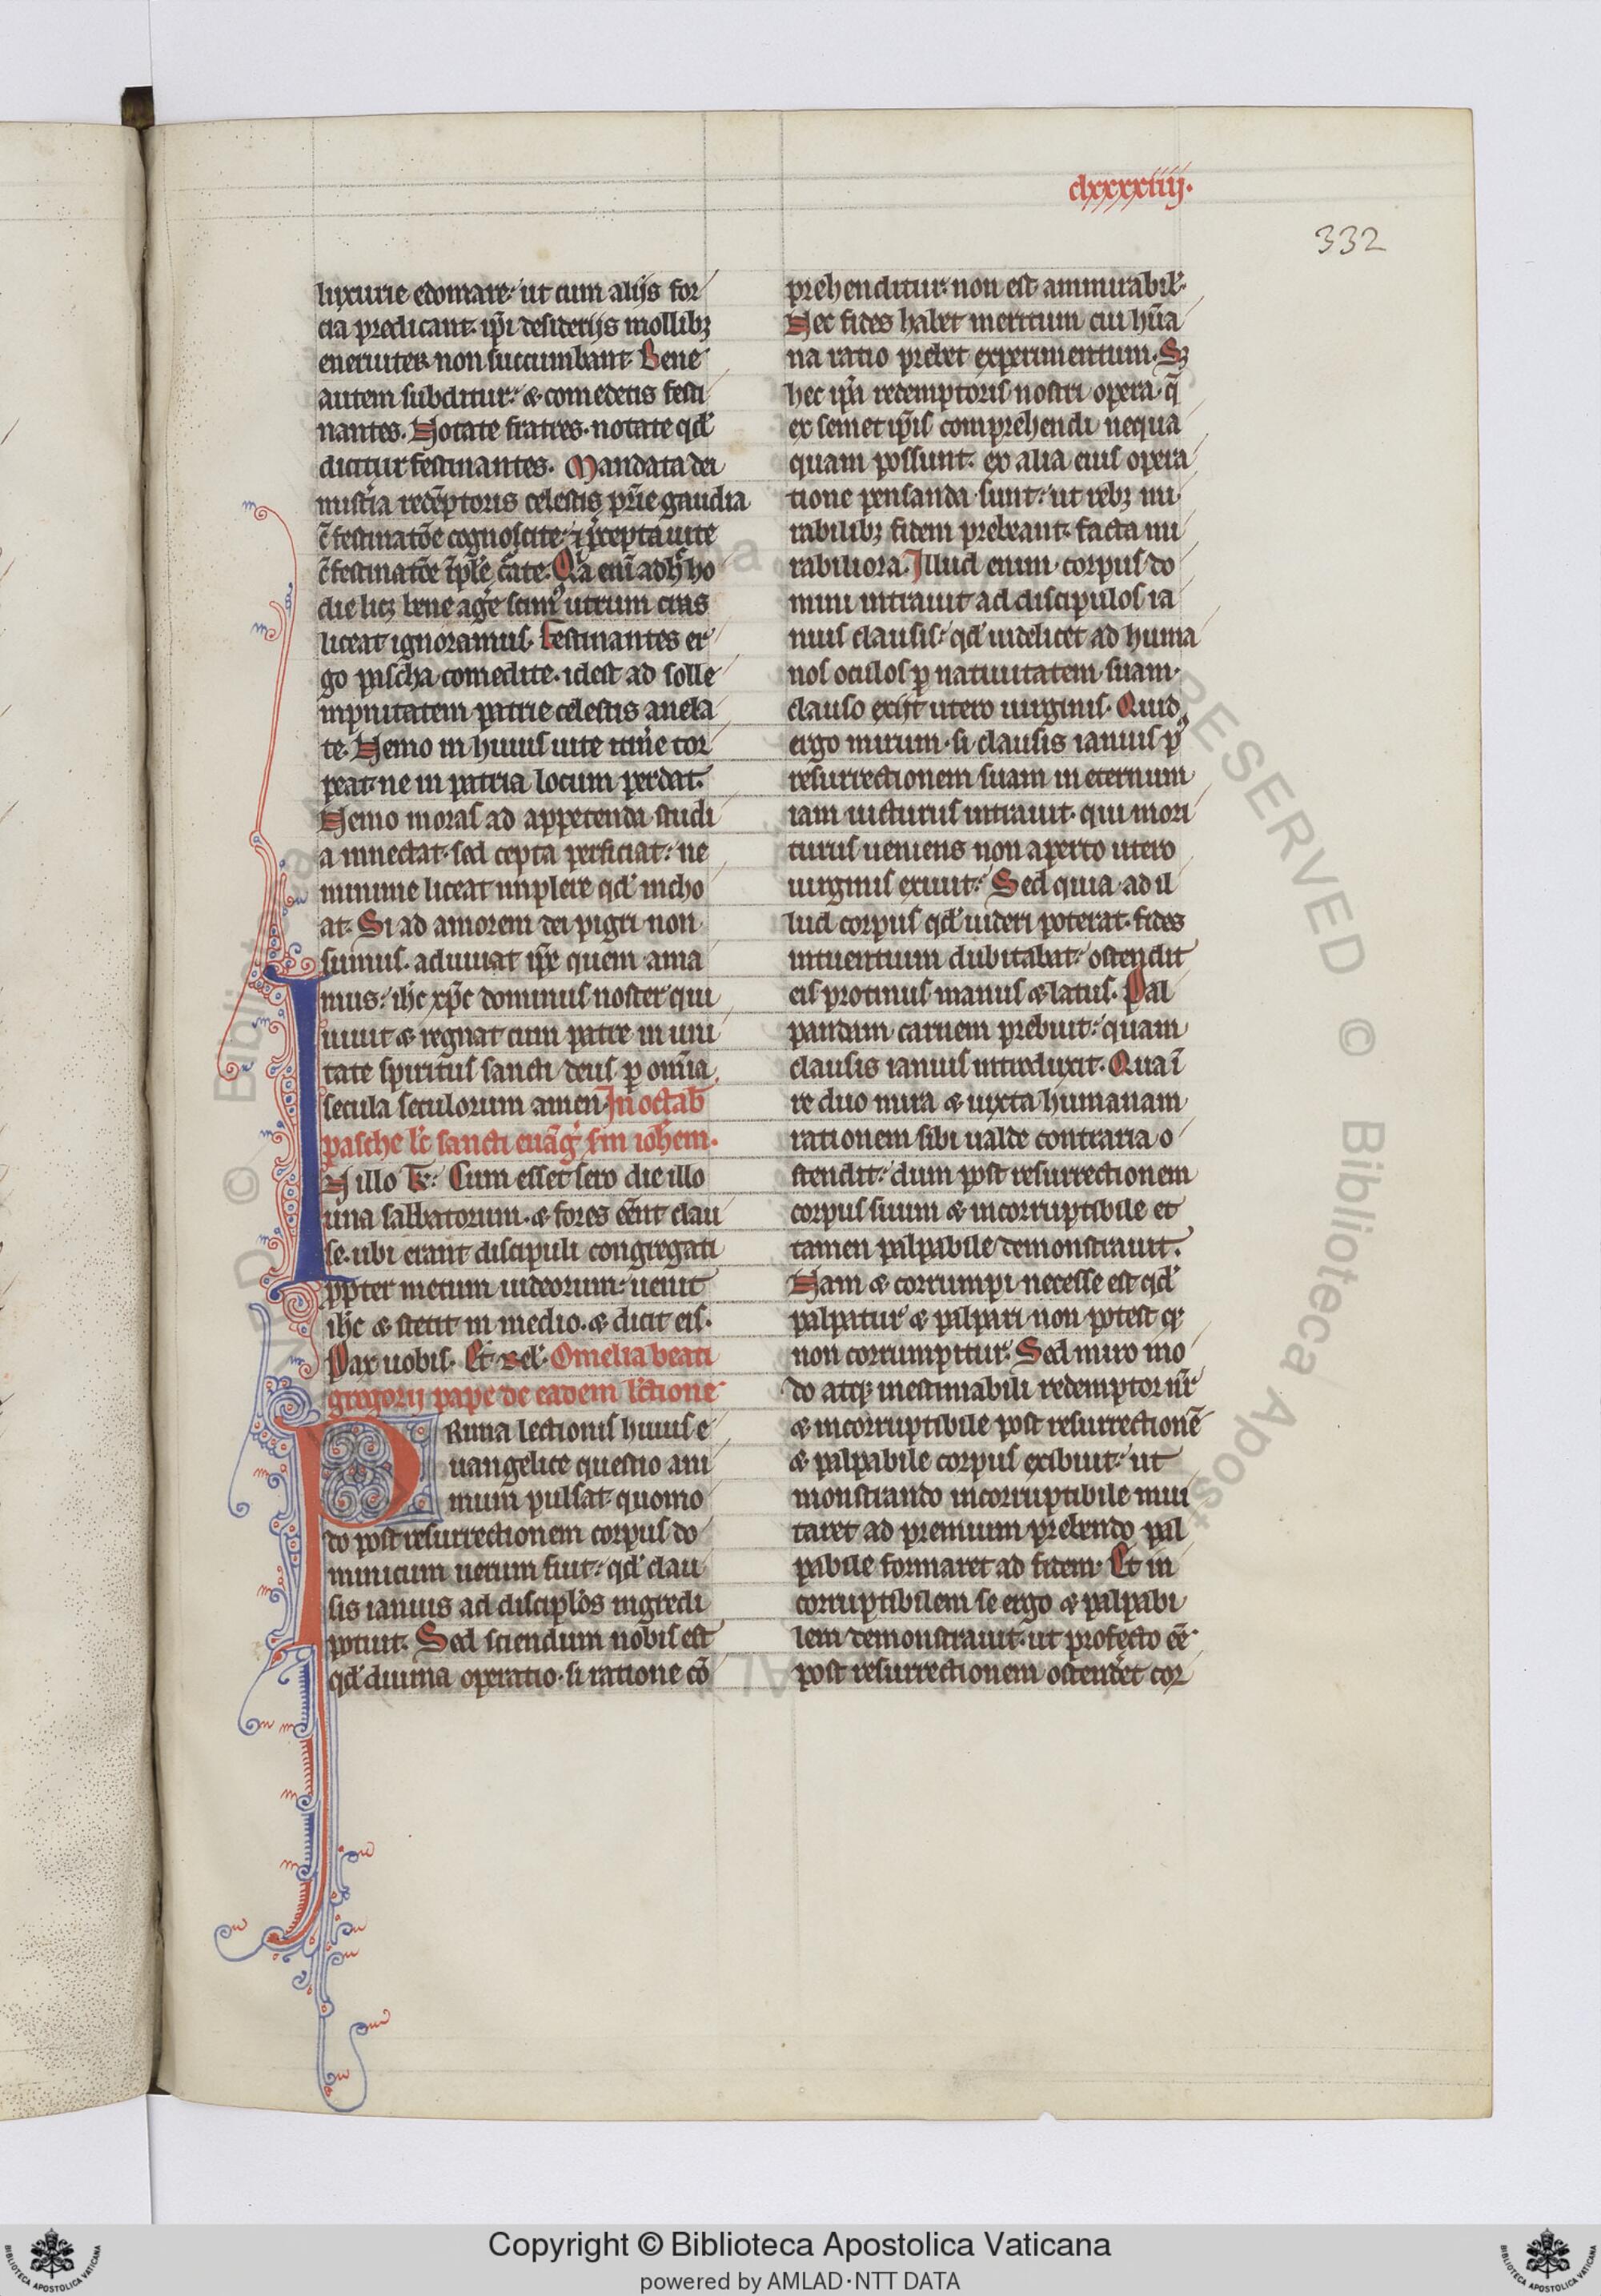 clxxxxiiij.
332
luxurie edomare: ut cum alijs for
cia predicant. ip̄i desiderijs mollibꝫ
eneruiter non succumbant. Bene
autem subditur: & comedetis festi
nantes. Notate fratres. notate qd̄
dicitur festinantes. Mandata dei
c̄ festinatōe cognoscite: ⁊ p̄cepta uite
die licꝫ bene agē scimꝰ utrum cras
liceat ignoramus. Festinantes er
go pascha comedite. idest ad solle
mpnitatem patrie celestis anela
te. Nemo in huius uite itin̄e tor
peat. ne in patria locum perdat.
Nemo moras ad appetenda studi
a innectat. sed cepta perficiat: ne
minime liceat implere qd̄ incho
at. Si ad amorem dei pigri non
sumus. adiuuat ip̄e quem ama
mus: ih̄c xp̄c dominus noster qui
uiuit & regnat cum patre in uni
tate spiritus sancti deus p̱ om̄ia
secula seculorum amen. In octab̄
pasche lc̄ sancti euāḡ scd̄m ioh̄em.
N illo t̄: Cum esset sero die illo
una sabbatorum. & fores ēēnt clau
se. ubi erant discipuli congregati
p̱pter metum iudeorum: uenit
ih̄c & stetit in medio. & dicit eis.
Pax uobis. Et rel̄. Omelia beati
gregorij pape de eadem lc̄tione
Rima lectionis huius e
uangelice questio ani
mum pulsat. quomo
do post resurrectionem corpus do
minicum uerum fuit: qd̄ clau
sis ianuis ad discipl̄os ingredi
potuit. Sed sciendum nobis est
qd̄ diuina operatio. si ratione cō
prehenditur. non est ammirabil̄.
Nec fides habet meritum cui hūa
na ratio prebet experimentum. Sꝫ
hec ip̄a redemptoris nostri opera. q̄
ex semetip̄is comprehendi nequa
quam possunt. ex alia eius opera
tione pensanda sunt: ut rebꝫ mi
rabilibꝫ fidem prebeant. facta mi
rabiliora. Illud enim corpus do
mini intrauit ad discipulos ia
nuis clausis: qd̄ uidelicet ad huma
nos oculos p̱ natiuitatem suam.
clauso exijt utero uirginis. Quid
ergo mirum. si clausis ianuis pꝰ
resurrectionem suam in eternum
iam uicturus intrauit. qui mori
turus ueniens non aperto utero
uirginis exiuit: Sed quia ad il
lud corpus qd̄ uideri poterat. fides
intuentium dubitabat: ostendit
eis protinus manus & latus. Pal
pandam carnem prebuit: quam
clausis ianuis introduxit. Qua ī
re duo mira & iuxta humanam
rationem sibi ualde contraria o
stendit: dum post resurrectionem
corpus suum & incorruptibile et
tamen palpabile demonstrauit.
Nam & corrumpi necesse est qd̄
palpatur & palpari non potest qd̄
non corrumpitur. Sed miro mo
do atqꝫ inestimabili redemptor nr̄
& incorruptibile post resurrectionē
& palpabile corpus exibuit: ut
monstrando incorruptibile inui
taret ad premium prebendo pal
pabile formaret ad fidem. Et in
corruptibilem se ergo & palpabi
lem demonstrauit. ut profecto ēē
post resurrectionem ostend̄et cor
Copyright © Biblioteca Apostolica Vaticana
powered by AMLAD·NTT DATA